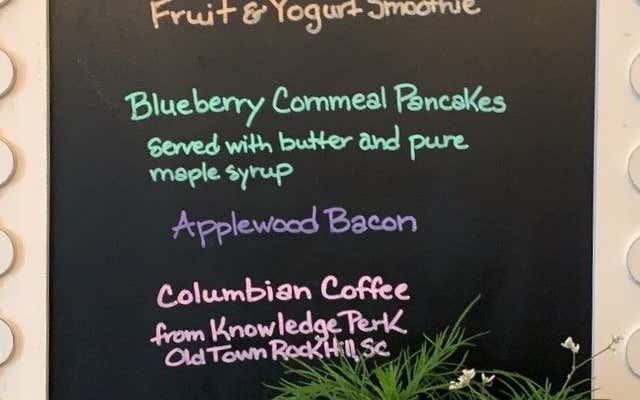 Fruit & Yogurt Smoothie
Blueberry Cornmeal Pancakes
served with butter and pure
maple syrup
Applewood Bacon
Columbian Coffee
from Knowledge Perk
Old Town Rock Hill, SC